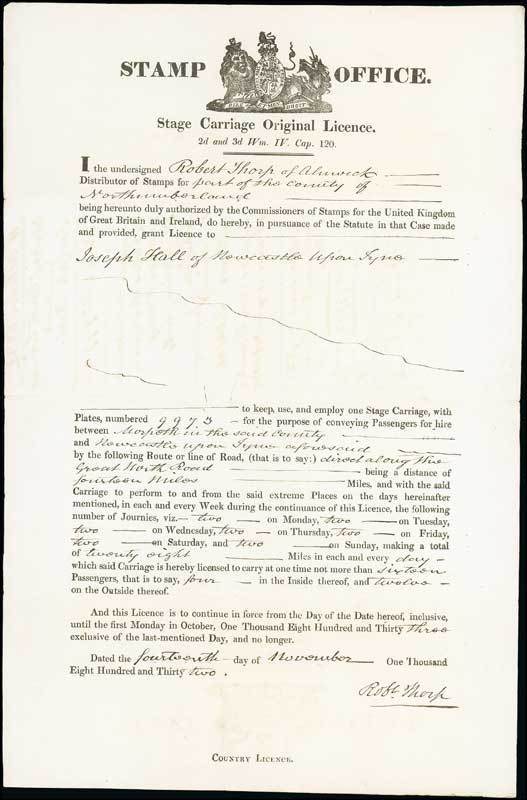 STAMP OFFICE.
DIEU ET MON DROIT
Stage Carriage Original Licence.
2d and 3d Wm. IV. Cap. 120.
I the undersigned Robert Thorp of Alnwick
Distributor of Stamps for part of the County of
Northumberland
being hereunto duly authorized by the Commissioners of Stamps for the United Kingdom
of Great Britain and Ireland, do hereby, in pursuance of the Statute in that Case made
and provided, grant Licence to
Joseph Hall of Newcastle upon Tyne
to keep, use, and employ one Stage Carriage, with
Plates, numbered 9973 for the purpose of conveying Passengers for hire
between Morpeth in the said County
and Newcastle upon Tyne aforesaid
by the following Route or line of Road, (that is to say:) direct along the
Great North Road being a distance of
fourteen Miles Miles, and with the said
Carriage to perform to and from the said extreme Places on the days hereinafter
mentioned, in each and every Week during the continuance of this Licence, the following
number of Journies, viz.— two on Monday, two on Tuesday,
two on Wednesday, two on Thursday, two on Friday,
two on Saturday, and two on Sunday, making a total
of twenty eight Miles in each and every day
which said Carriage is hereby licensed to carry at one time not more than sixteen
Passengers, that is to say, four in the Inside thereof, and twelve
on the Outside thereof.
And this Licence is to continue in force from the Day of the Date hereof, inclusive,
until the first Monday in October, One Thousand Eight Hundred and Thirty three
exclusive of the last-mentioned Day, and no longer.
Dated the fourteenth day of November One Thousand
Eight Hundred and Thirty two.
Robt. Thorp
COUNTRY LICENCE.